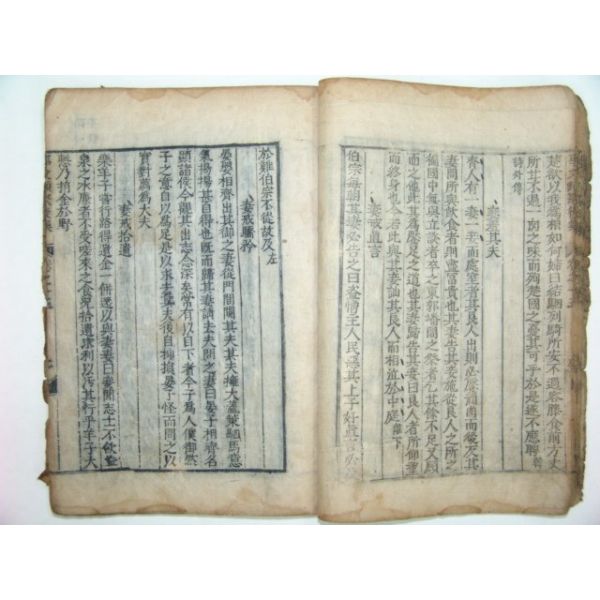 楚欲以我爲相如何婦曰結駟列騎所安不過容膝食前方丈
所甘不過一肉之味而殉楚國之憂其可乎於是遂不應聘
詩外傳
妻羞其夫
齊人有一妻一妾而處室者其良人出則必饜酒肉而後反其
妻問所與飲食者則盡富貴也其妻施從良人之所之
徧國中無與立談者卒之東郭墦間之祭者乞其餘不足又顧
而之他此其爲饜足之道也其妻歸告其妾曰良人者所仰望
而終身也今若此與其妾訕其良人而相泣於中庭離下
妻戒直言
伯宗每朝其妻必告之曰盜憎主人民惡其上子好直言必及
於難伯宗不從故及左
妻戒驕矜
晏嬰相齊出其御之妻從門間闚其夫其夫擁大蓋策駟馬意
氣揚揚甚自得也既而歸其妻請去夫問之妻曰晏子相齊名
顯諸侯今觀其出志念深矣常有以自下者今子爲人僕御然
子之意自以爲足是以求去其夫後自抑損晏子怪而問之以
實對薦爲大夫
妻戒拾遺
樂羊子嘗行路得遺金一餅還以與妻妻曰妾聞志士不飲盜
泉之水廉者不受嗟來之食況拾遺求利以污其行乎羊子大
慙乃捐金於野